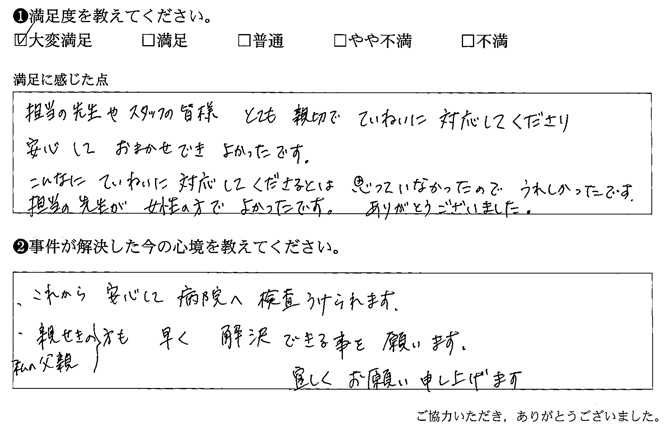 ❶満足度を教えてください。
☑大変満足 □満足 □普通 □やや不満 □不満
満足に感じた点
担当の先生や スタッフの皆様 とても 親切で ていねいに 対応してくださり
安心 して おまかせでき よかったです。
こんなに ていねいに 対応してくださるとは 思っていなかったので うれしかったです.
担当の先生が 女性の方で よかったです。 ありがとうございました。
❷事件が解決した今の心境を教えてください。
、これから 安心して 病院へ 検査うけられます.
・親せきの方も 早く 解決 できる事を 願います。
私の父親
宜しく お願い 申し上げます
ご協力いただき，ありがとうございました。